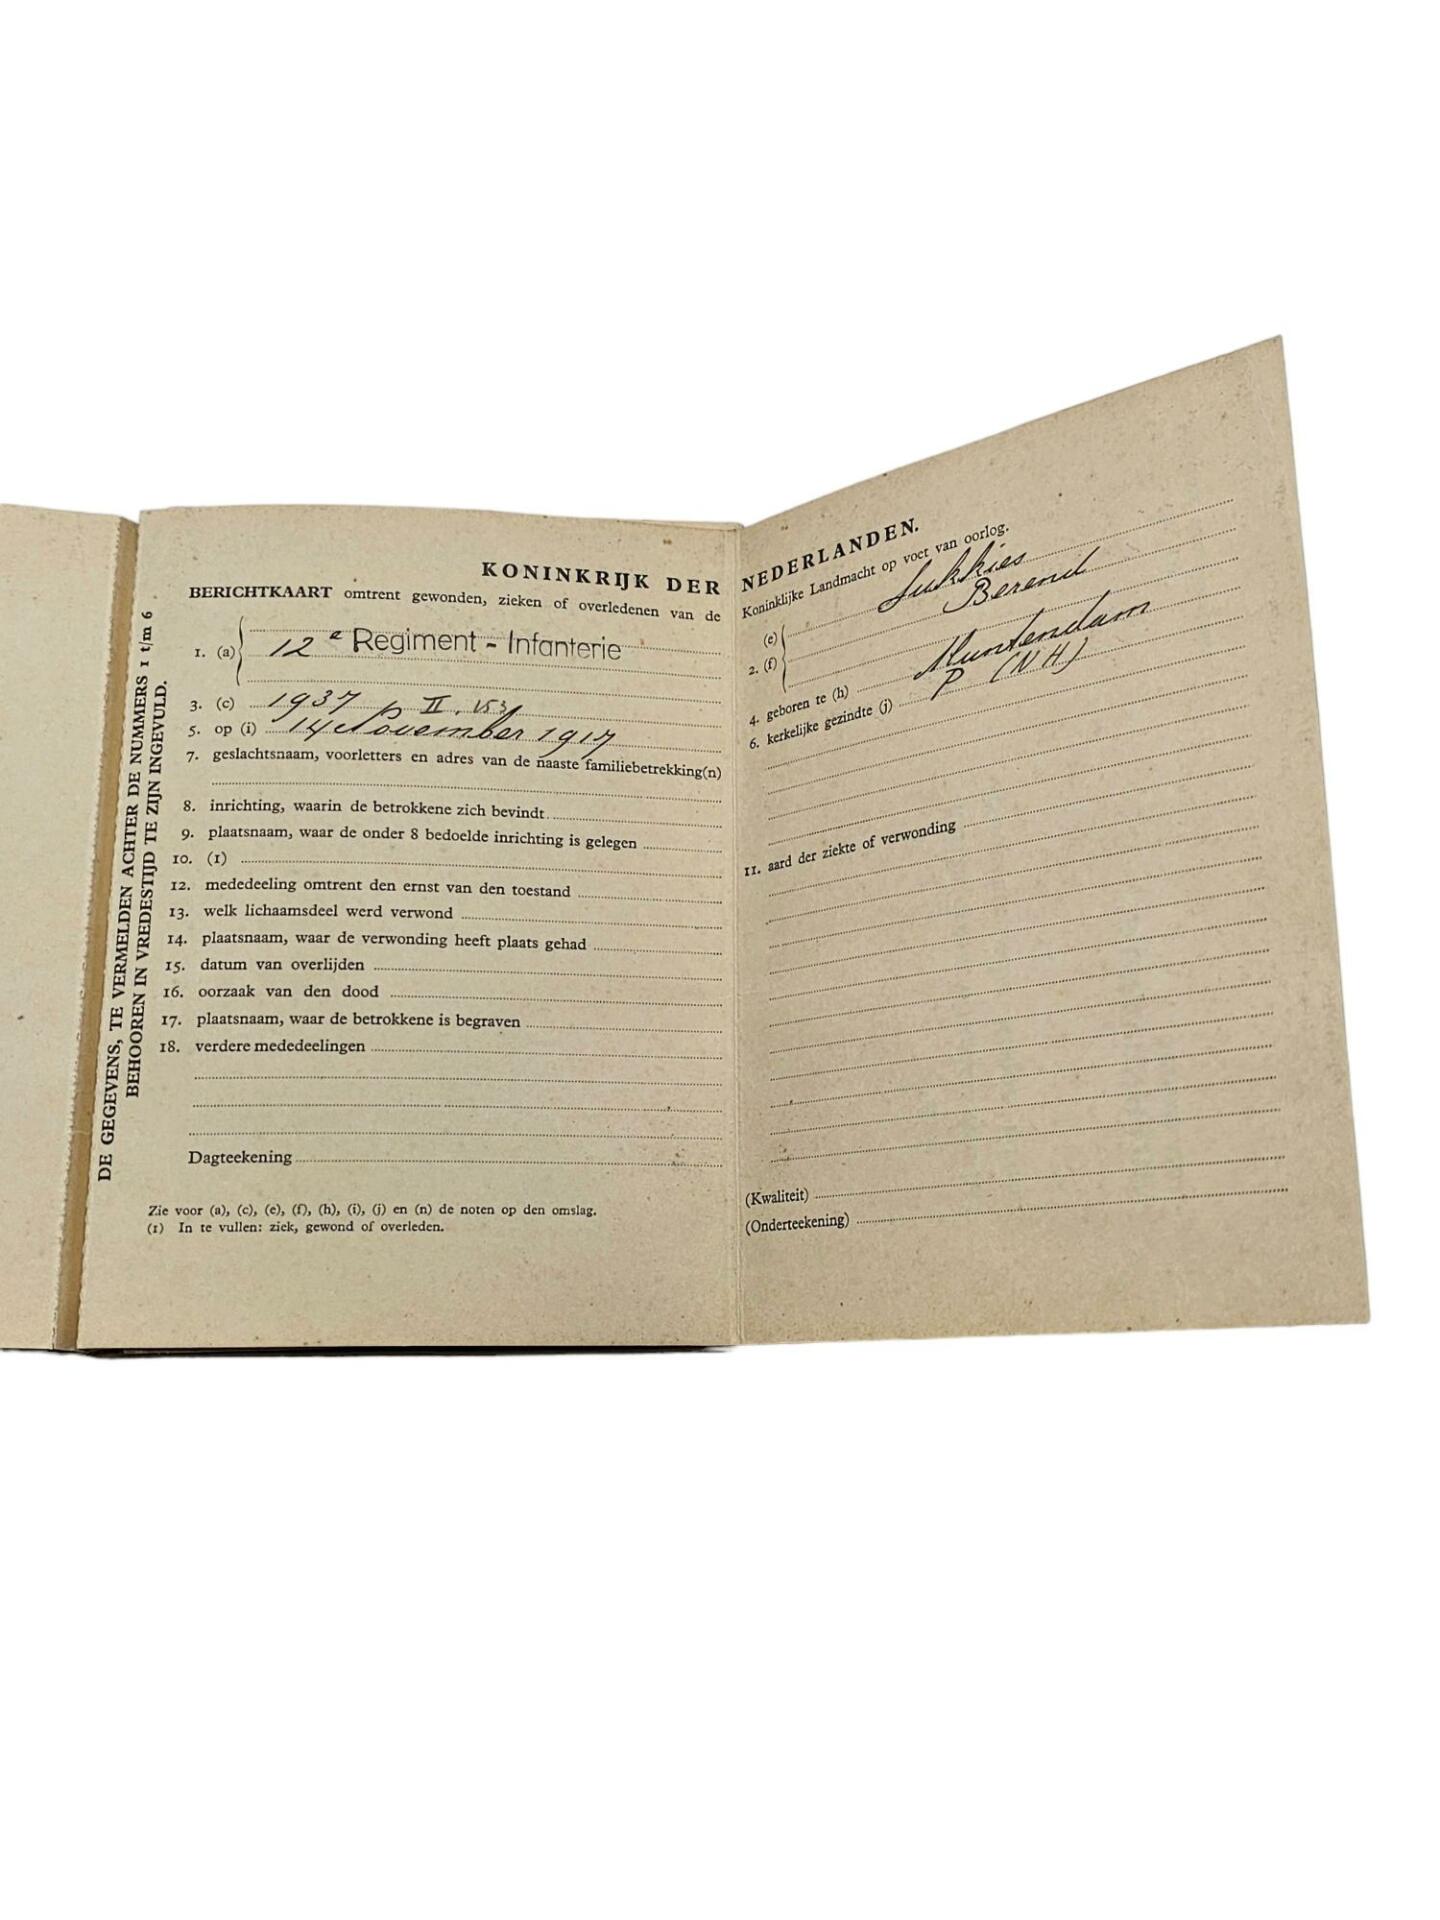 DE GEGEVENS, TE VERMELDEN ACHTER DE NUMMERS 1 t/m 6
BEHOOREN IN VREDESTIJD TE ZIJN INGEVULD.
KONINKRIJK DER
BERICHTKAART omtrent gewonden, zieken of overledenen van de
1. (a) 12e Regiment - Infanterie
3. (c) 1937 II.
5. op (i) 14 November 1917
7. geslachtsnaam, voorletters en adres van de naaste familiebetrekking(n)
8. inrichting, waarin de betrokkene zich bevindt
9. plaatsnaam, waar de onder 8 bedoelde inrichting is gelegen
10. (1)
12. mededeeling omtrent den ernst van den toestand
13. welk lichaamsdeel werd verwond
14. plaatsnaam, waar de verwonding heeft plaats gehad
15. datum van overlijden
16. oorzaak van den dood
17. plaatsnaam, waar de betrokkene is begraven
18. verdere mededeelingen
Dagteekening
Zie voor (a), (c), (e), (f), (h), (i), (j) en (n) de noten op den omslag.
(1) In te vullen: ziek, gewond of overleden.
NEDERLANDEN.
Koninklijke Landmacht op voet van oorlog.
(e) Lukkies
2. (f) Berend
4. geboren te (h) Muntendam
6. kerkelijke gezindte (j) P (NH)
11. aard der ziekte of verwonding
(Kwaliteit)
(Onderteekening)